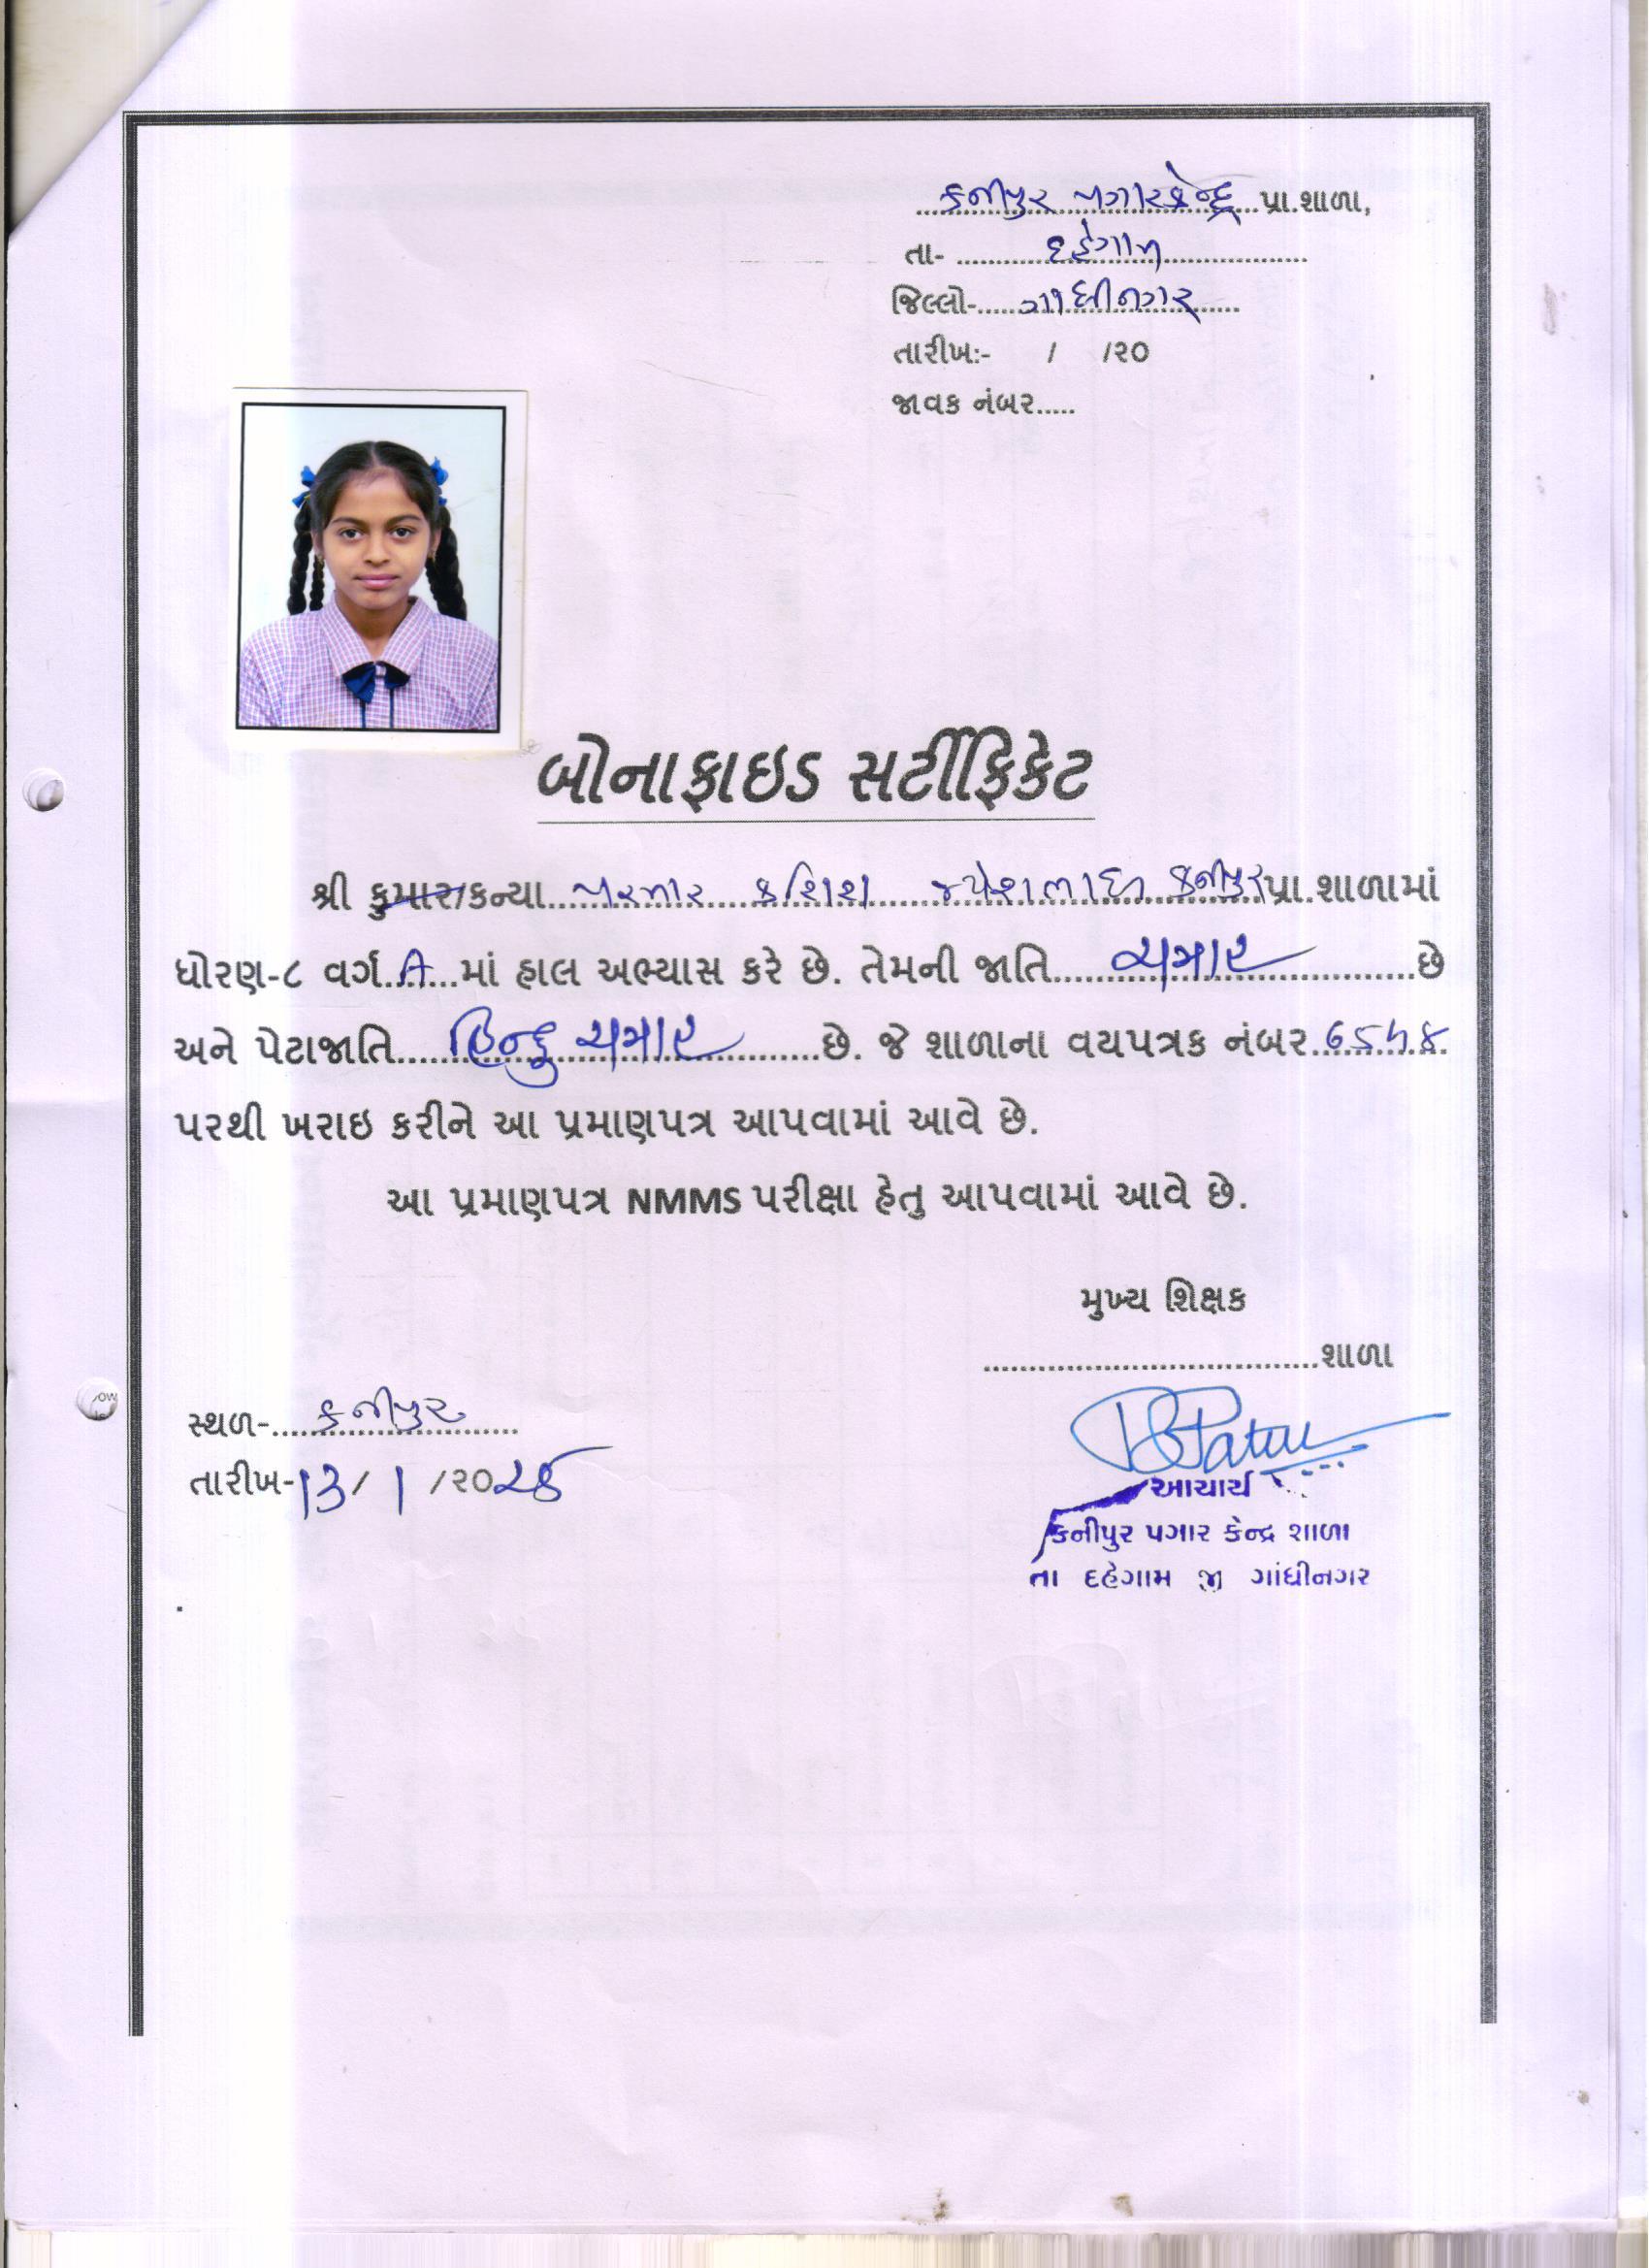 કનીપુર પગારકેન્દ્ર પ્રા.શાળા,
તા- દહેગામ
જિલ્લો- ગાંધીનગર
તારીખ:- / /૨૦
જાવક નંબર.....
બોનાફાઇડ સર્ટીફિકેટ
શ્રી કુમાર/કન્યા પરમાર કશિશ જયેશભાઈ કનીપુર પ્રા.શાળામાં
ધોરણ-૮ વર્ગ A માં હાલ અભ્યાસ કરે છે. તેમની જાતિ ચમાર છે
અને પેટાજાતિ હિન્દુ ચમાર છે. જે શાળાના વયપત્રક નંબર
પરથી ખરાઇ કરીને આ પ્રમાણપત્ર આપવામાં આવે છે.
આ પ્રમાણપત્ર NMMS પરીક્ષા હેતુ આપવામાં આવે છે.
મુખ્ય શિક્ષક
શાળા
સ્થળ- કનીપુર
તારીખ- 13/ 1 /૨૦
આચાર્ય
કનીપુર પગાર કેન્દ્ર શાળા
તા દહેગામ જી ગાંધીનગર